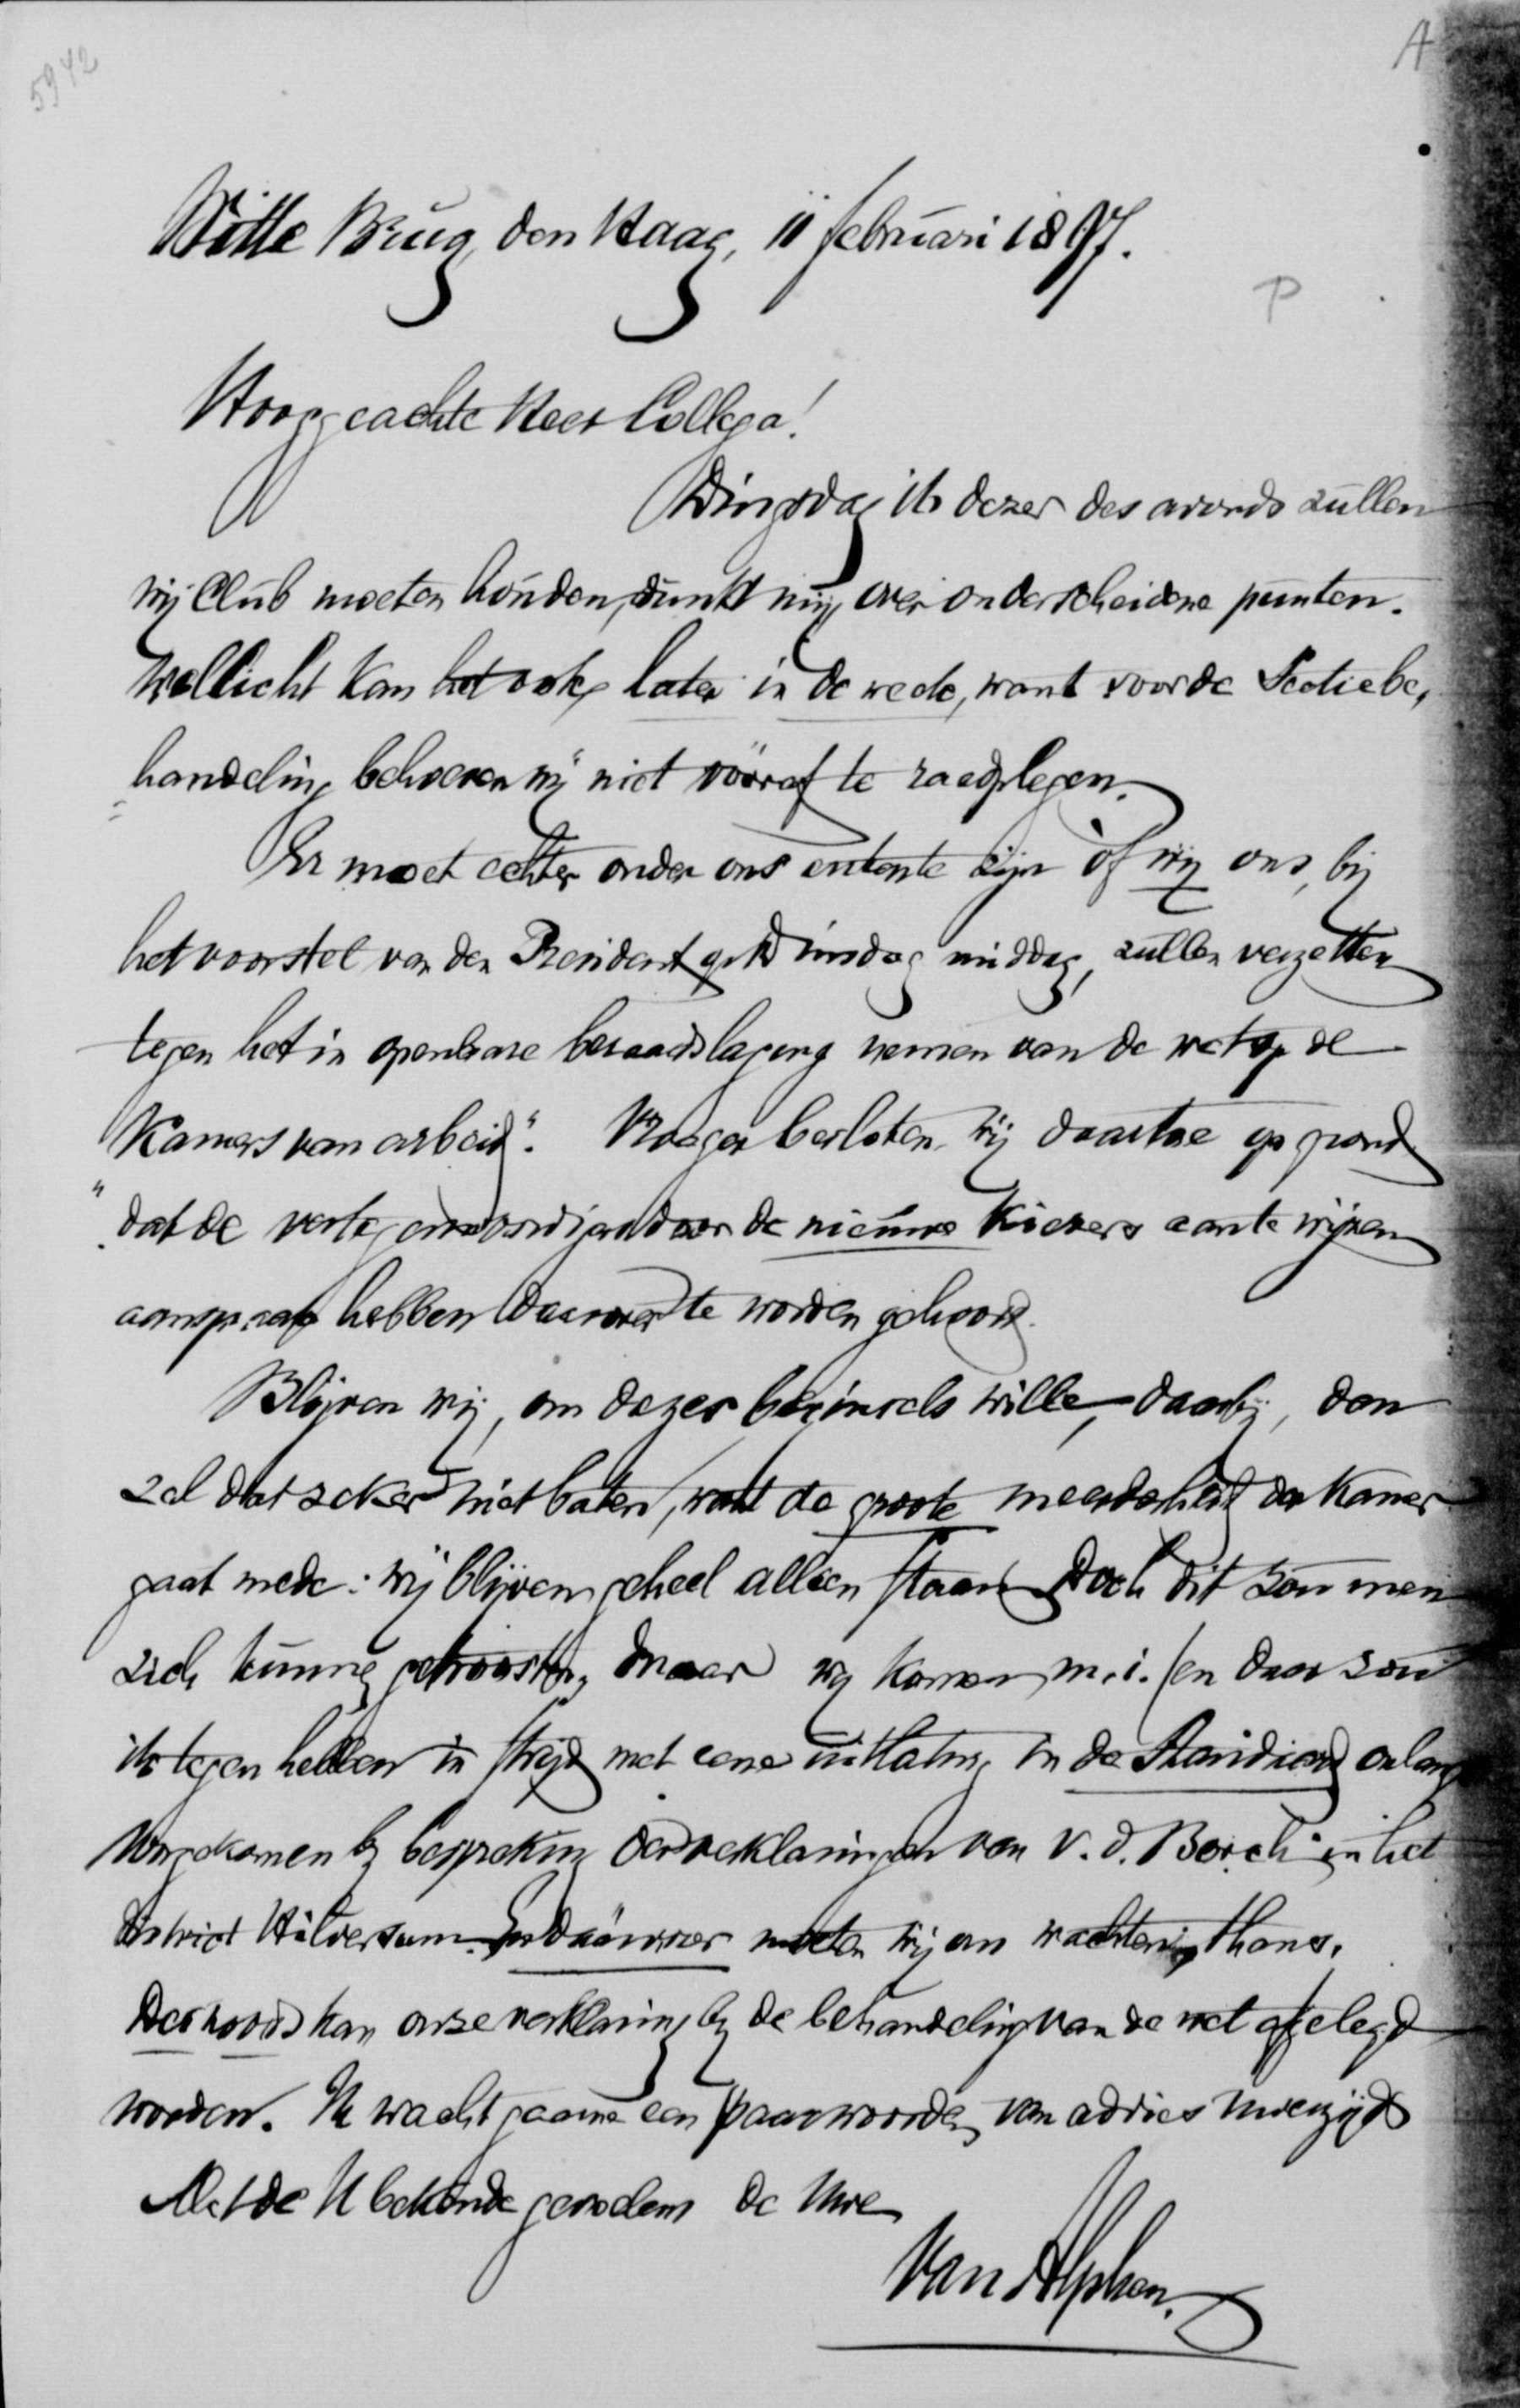 5942
A
Witte Brug, den Haag, 11 februari 1897.
P
Hooggeachte Heer Collega!
Dingsdag 16 dezer des avonds zullen
wij Club moeten houden, dunkt mij, over onderscheidene punten.
Wellicht kan het ook later in de week, want voor de Sectiebe,
handeling behoeven wij niet vóóraf te raadplegen.
Er moet echter onder ons entente zijn òf wij ons, bij
het voorstel van den President op Dinsdag middag, zullen verzetten
tegen het in openbare beraadslaging nemen van de wet op de
"Kamers van arbeid". Vroeger besloten wij daartoe op grond
"dat de vertegenwoordigers door de nieuwe Kiezers aan te wijzen
aanspraak hebben daarover te worden gehoord.
Blijven wij, om dezes beginsels wille, daarbij, dan
zal dat zeker niet baten, want de groote meerderheid der Kamer
gaat mede: wij blijven geheel alleen staan. Doch dit zou men
zich kunnen getroosten, maar wij komen m.i. (en daar zou
ik tegen hebben in strijd met eene uitlating in de Standaard onlangs
voorgekomen bij bespreking der verklaringen van v.d. Borch in het
district Hilversum. daarvoor moeten wij ons wachten thans.
Desnoods kan onze verklaring bij de behandeling van de wet afgelegd
worden. Ik wacht gaarne een paar woorden van advies Uwerzijds
Met de U bekende gevoelens de Uwe
Van Alphen.